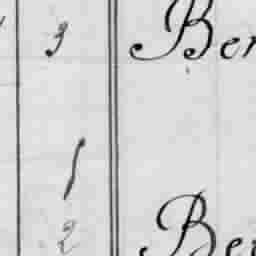 3 Ber
1
2 Be